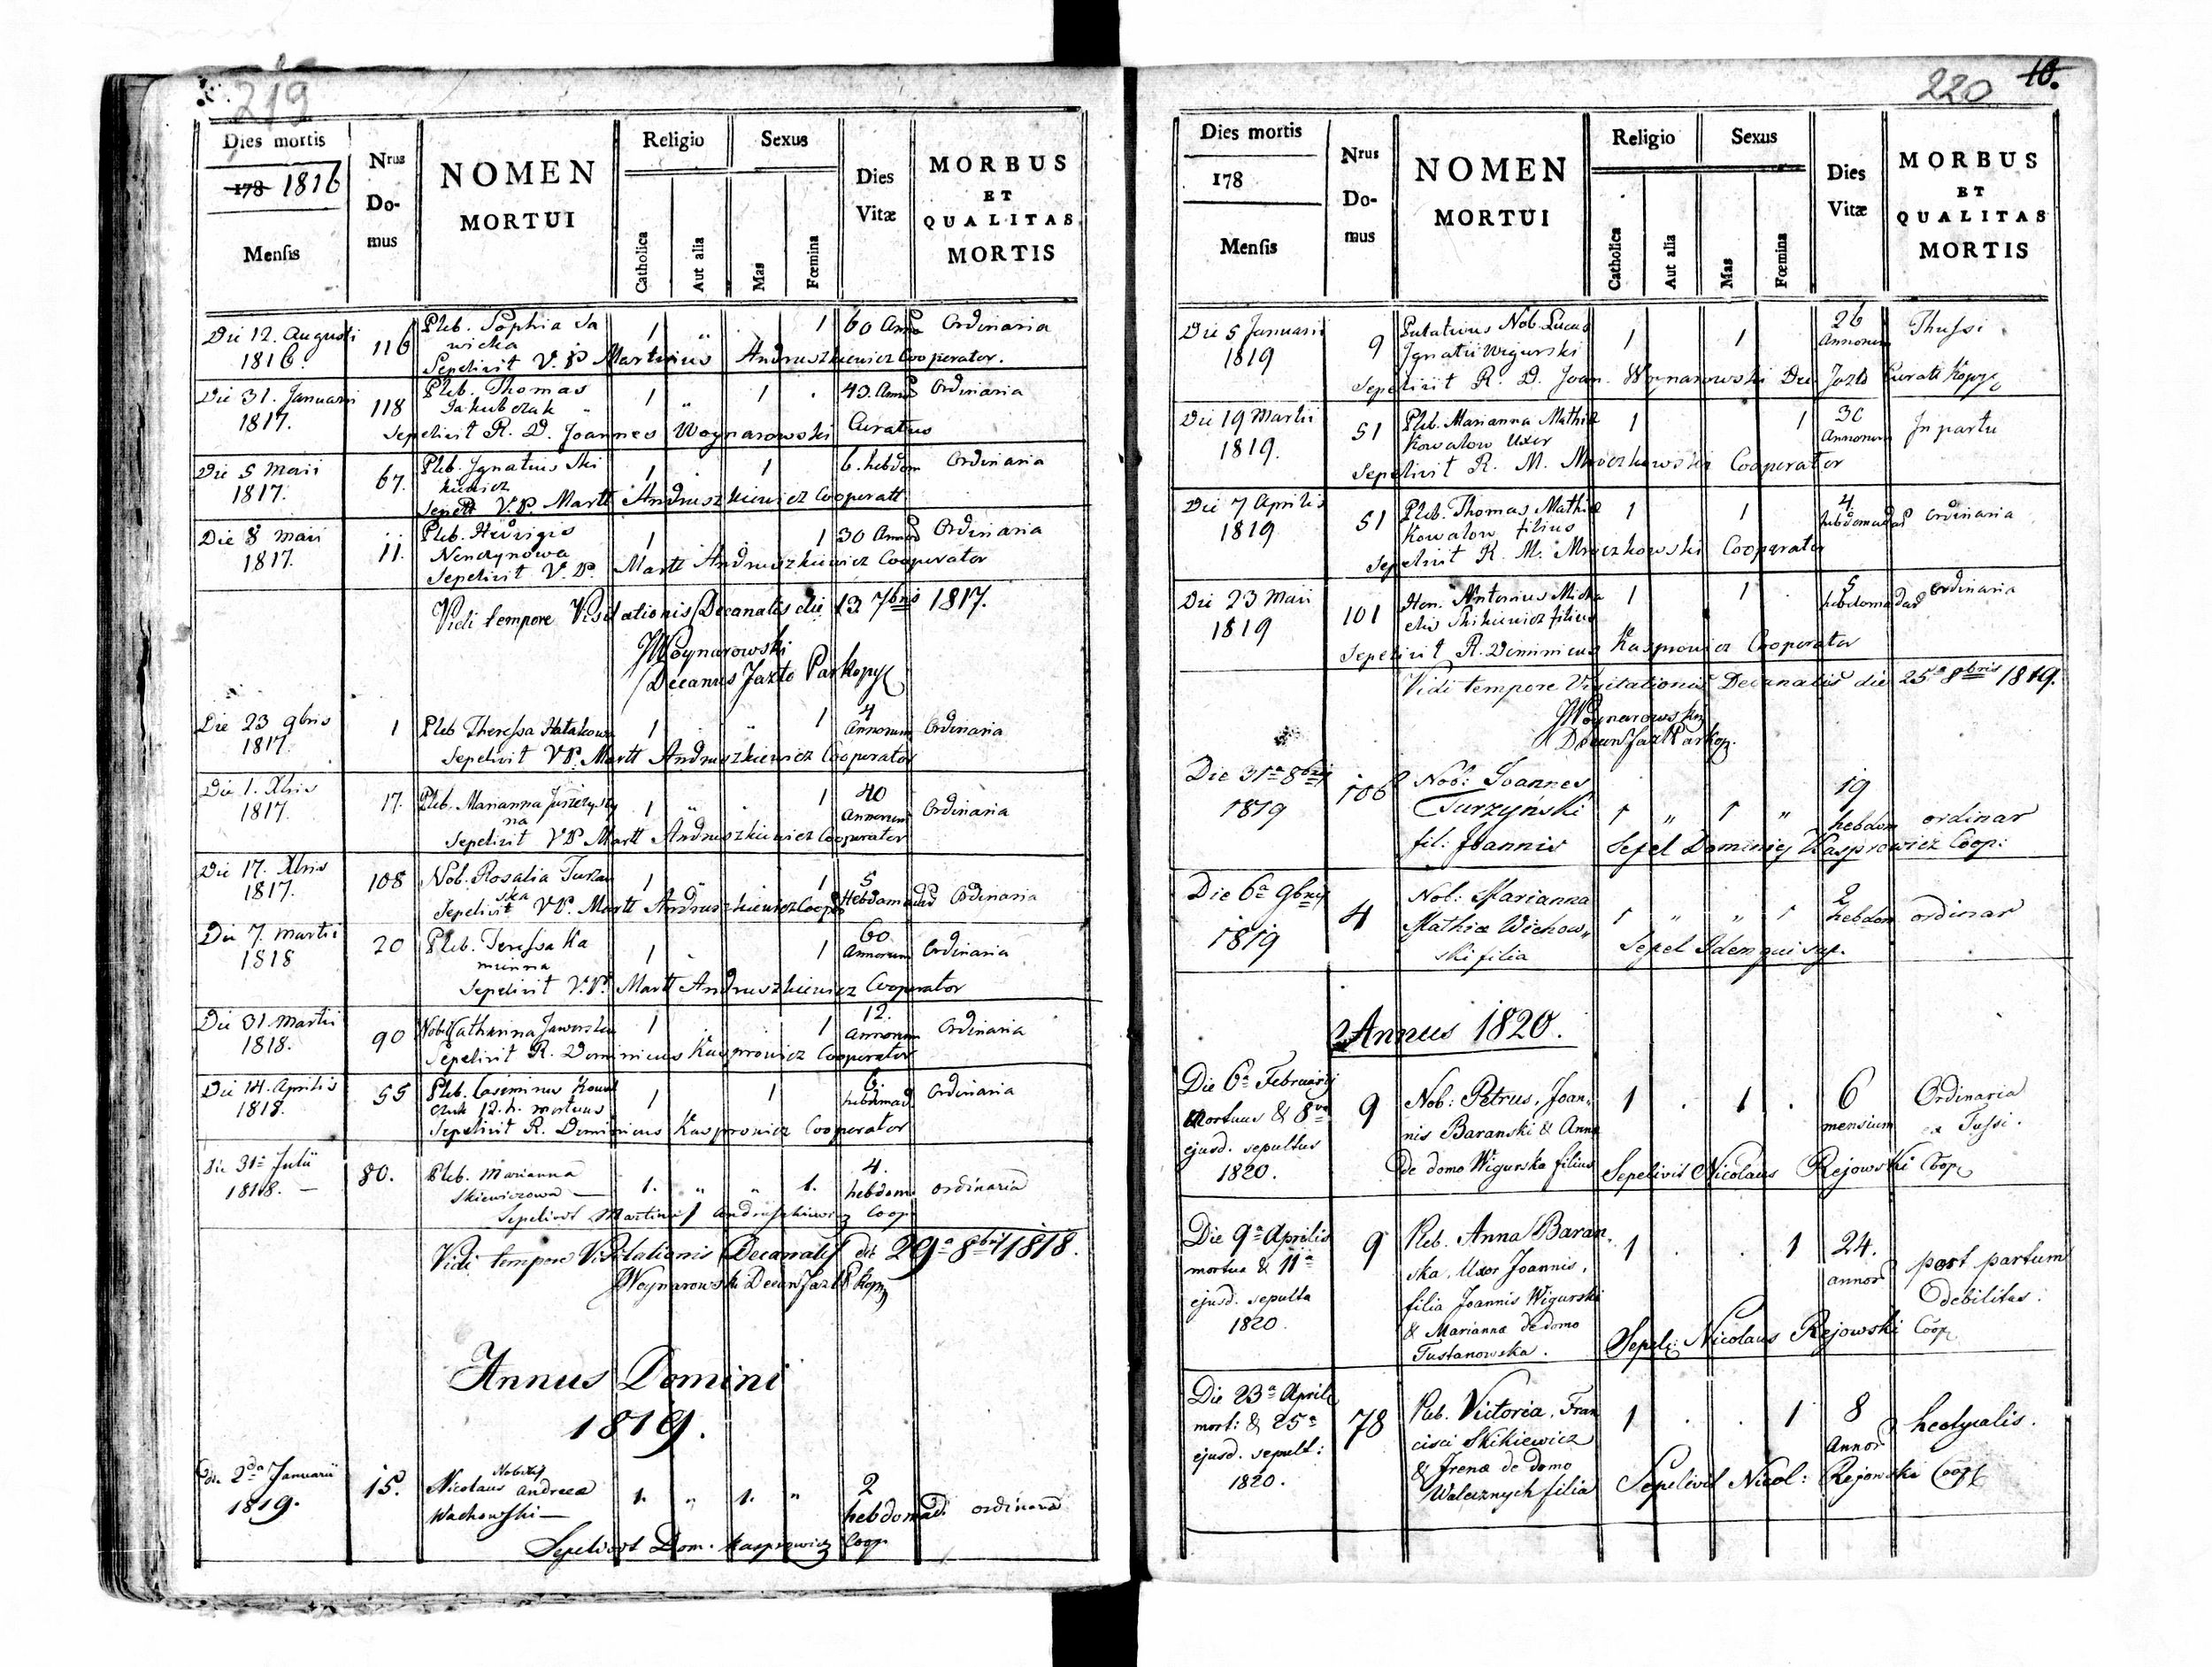 219
Dies mortis
178 1816
Mensis
Nrus
Do-
mus
NOMEN
MORTUI
Religio
Catholica
Aut alia
Sexus
Mas
Fœmina
Dies
Vitæ
MORBUS
ET
QUALITAS
MORTIS
Die 12. Augusti 116 Pleb. Sophia Sa 1 „ 1 60 Ordinaria
1816. wicka
Sepelivit V. P Martinus Andruszkiewicz Cooperator.
Die 31. Januarii 118 Pleb. Thomas 1 „ 1 . 43. Ordinaria
1817. Jakubczak
Sepelivit R. D. Joannes Woynarowski Curatus
Die 5 Maii 67. Pleb. Ignatius Ski 1 . 1 6. hebdom Ordinaria
1817. kiewicz
V.P Martt Andruszkiewicz Cooperatt
Die 8 Maii 11. Pleb. Hedvigis 1 . 1 30 Ordinaria
1817. Nenczynowa
Sepelivit V. P. Martt Andruszkiewicz Cooperator
Vidi tempore Visitationis Decanalis die 13 7bris 1817.
JWoynarowski
Decanus Jazlo Par kopy
Die 23 9bris 1 Pleb Theressa Hatakowa 1 . „ 1 4 Annorum Ordinaria
1817.
Sepelivit VP. Martt Andruszkiewicz Cooperator
Die 1. Xbris 17. Pleb. Marianna 1 . 1 40 Annorum Ordinaria
1817. na
Sepelivit VP Martt Andruszkiewicz Cooperator
Die 17. Xbris 108 Nob. Rosalia Turzan 1 „ 1 5 Hebdomadas Ordinaria
1817. ska
Sepelivit VP. Martt Andruszkiewicz Coop
Die 7. Martii 20 Pleb. Teressa Ka 1 . 1 60 Annorum Ordinaria
1818 minna
Sepelivit V.P. Martt Andruszkiewicz Cooperator
Die 31 Martii 90 Nob. Catharina Jaworska 1 . . 1 12. Annorum Ordinaria
1818.
Sepelivit R. Dominicus Kasprowicz Cooperator
Die 14. Aprilis 55 Pleb. Casimirus Kowal 1 1 6. hebdomad Ordinaria
1818. czuk 12. h. mortuus
Sepelivit R. Dominicus Kasprowicz Cooperator
Die 31a Julii 80. Pleb. Marianna 1. „ „ 1. 4. hebdom ordinaria
1818. — Skiewiczowa —
Sepelivit Martinus Andruszkiewicz Coop
Vidi tempore Visitationis Decanalis die 29a 8bris 1818.
JWoynarowski Decan Jazl P kopy
Annus Domini
1819.
Die 2da Januarii 15. Nobilis 1. „ 1. „ 2 hebdomad. ordinaria
1819. Nicolaus Andreea
Wachowski —
Sepelivit Dom. Kasprowicz Coop
220 10.
Dies mortis
178
Mensis
Nrus
Do-
mus
NOMEN
MORTUI
Religio
Catholica
Aut alia
Sexus
Mas
Fœmina
Dies
Vitæ
MORBUS
ET
QUALITAS
MORTIS
Die 5 Januarii 9 Putativus Nob. Lucas 1 1 26 Annorum Thussi
1819 Ignatii Wigurski
Sepelivit R. D. Joan. Woynarowski Dec Jazlo Curatt Kopy
Die 19 Martii 51 Pleb. Marianna Mathiæ 1 1 30 Annorum In partu
1819. Kowalow Uxor
Sepelivit R. M. Mroczkowski Cooperator
Die 7 Aprilis 51 Pleb. Thomas Mathiæ 1 1 4 hebdomadas Ordinaria
1819 Kowalow filius
Sepelivit R. M. Mroczkowski Cooperator
Die 23 Maii 101 Hon. Antonius Micha 1 1 5 hebdomadas Ordinaria
1819 elis Skikiewicz filius
Sepelivit R. Dominicus Kasprowicz Cooperator
Vidi tempore Visitationis Decanalis die 25a 8bris 1819.
JWoynarowski
Decan Jazl Par kop.
Die 31a 8bris 106 Nob: Joannes 1 „ 1 „ 19 hebdom ordinar
1819 Turzynski
fil: Joannis Sepel Dominicy Kasprowicz Coop:
Die 6a 9bris 4 Nob: Marianna 1 „ „ 1 2 hebdom ordinar
1819 Mathiæ Wichow„
ski filia Sepel Idem qui sup.
Annus 1820.
Die 6a Februarij 9 Nob: Petrus, Joan„ 1 . 1 . 6 mensium Ordinaria
Mortuus & 8va nis Baranski & Anna ex Tussi.
ejusd. sepultus de domo Wigurska filius Sepelivit Nicolaus Rejowski Coop
1820.
Die 9a Aprilis 9 Pleb. Anna Baran„ 1 . . 1 24. annor post partum
mortua & 11a ska, Uxor Joannis, debilitas.
ejusd. sepulta filia Joannis Wigurski
1820. & Marianna de domo
Tustanowska. Sepel: Nicolaus Rejowski Coop
Die 23a Aprilis 78 Pleb. Victoria, Fran 1 . . 1 8 Annor
mort: & 25a cisci Skikiewicz
ejusd. sepult: & Irenæ de domo
1820. Walecznych filia Sepelivit Nicol: Rejowski Coop